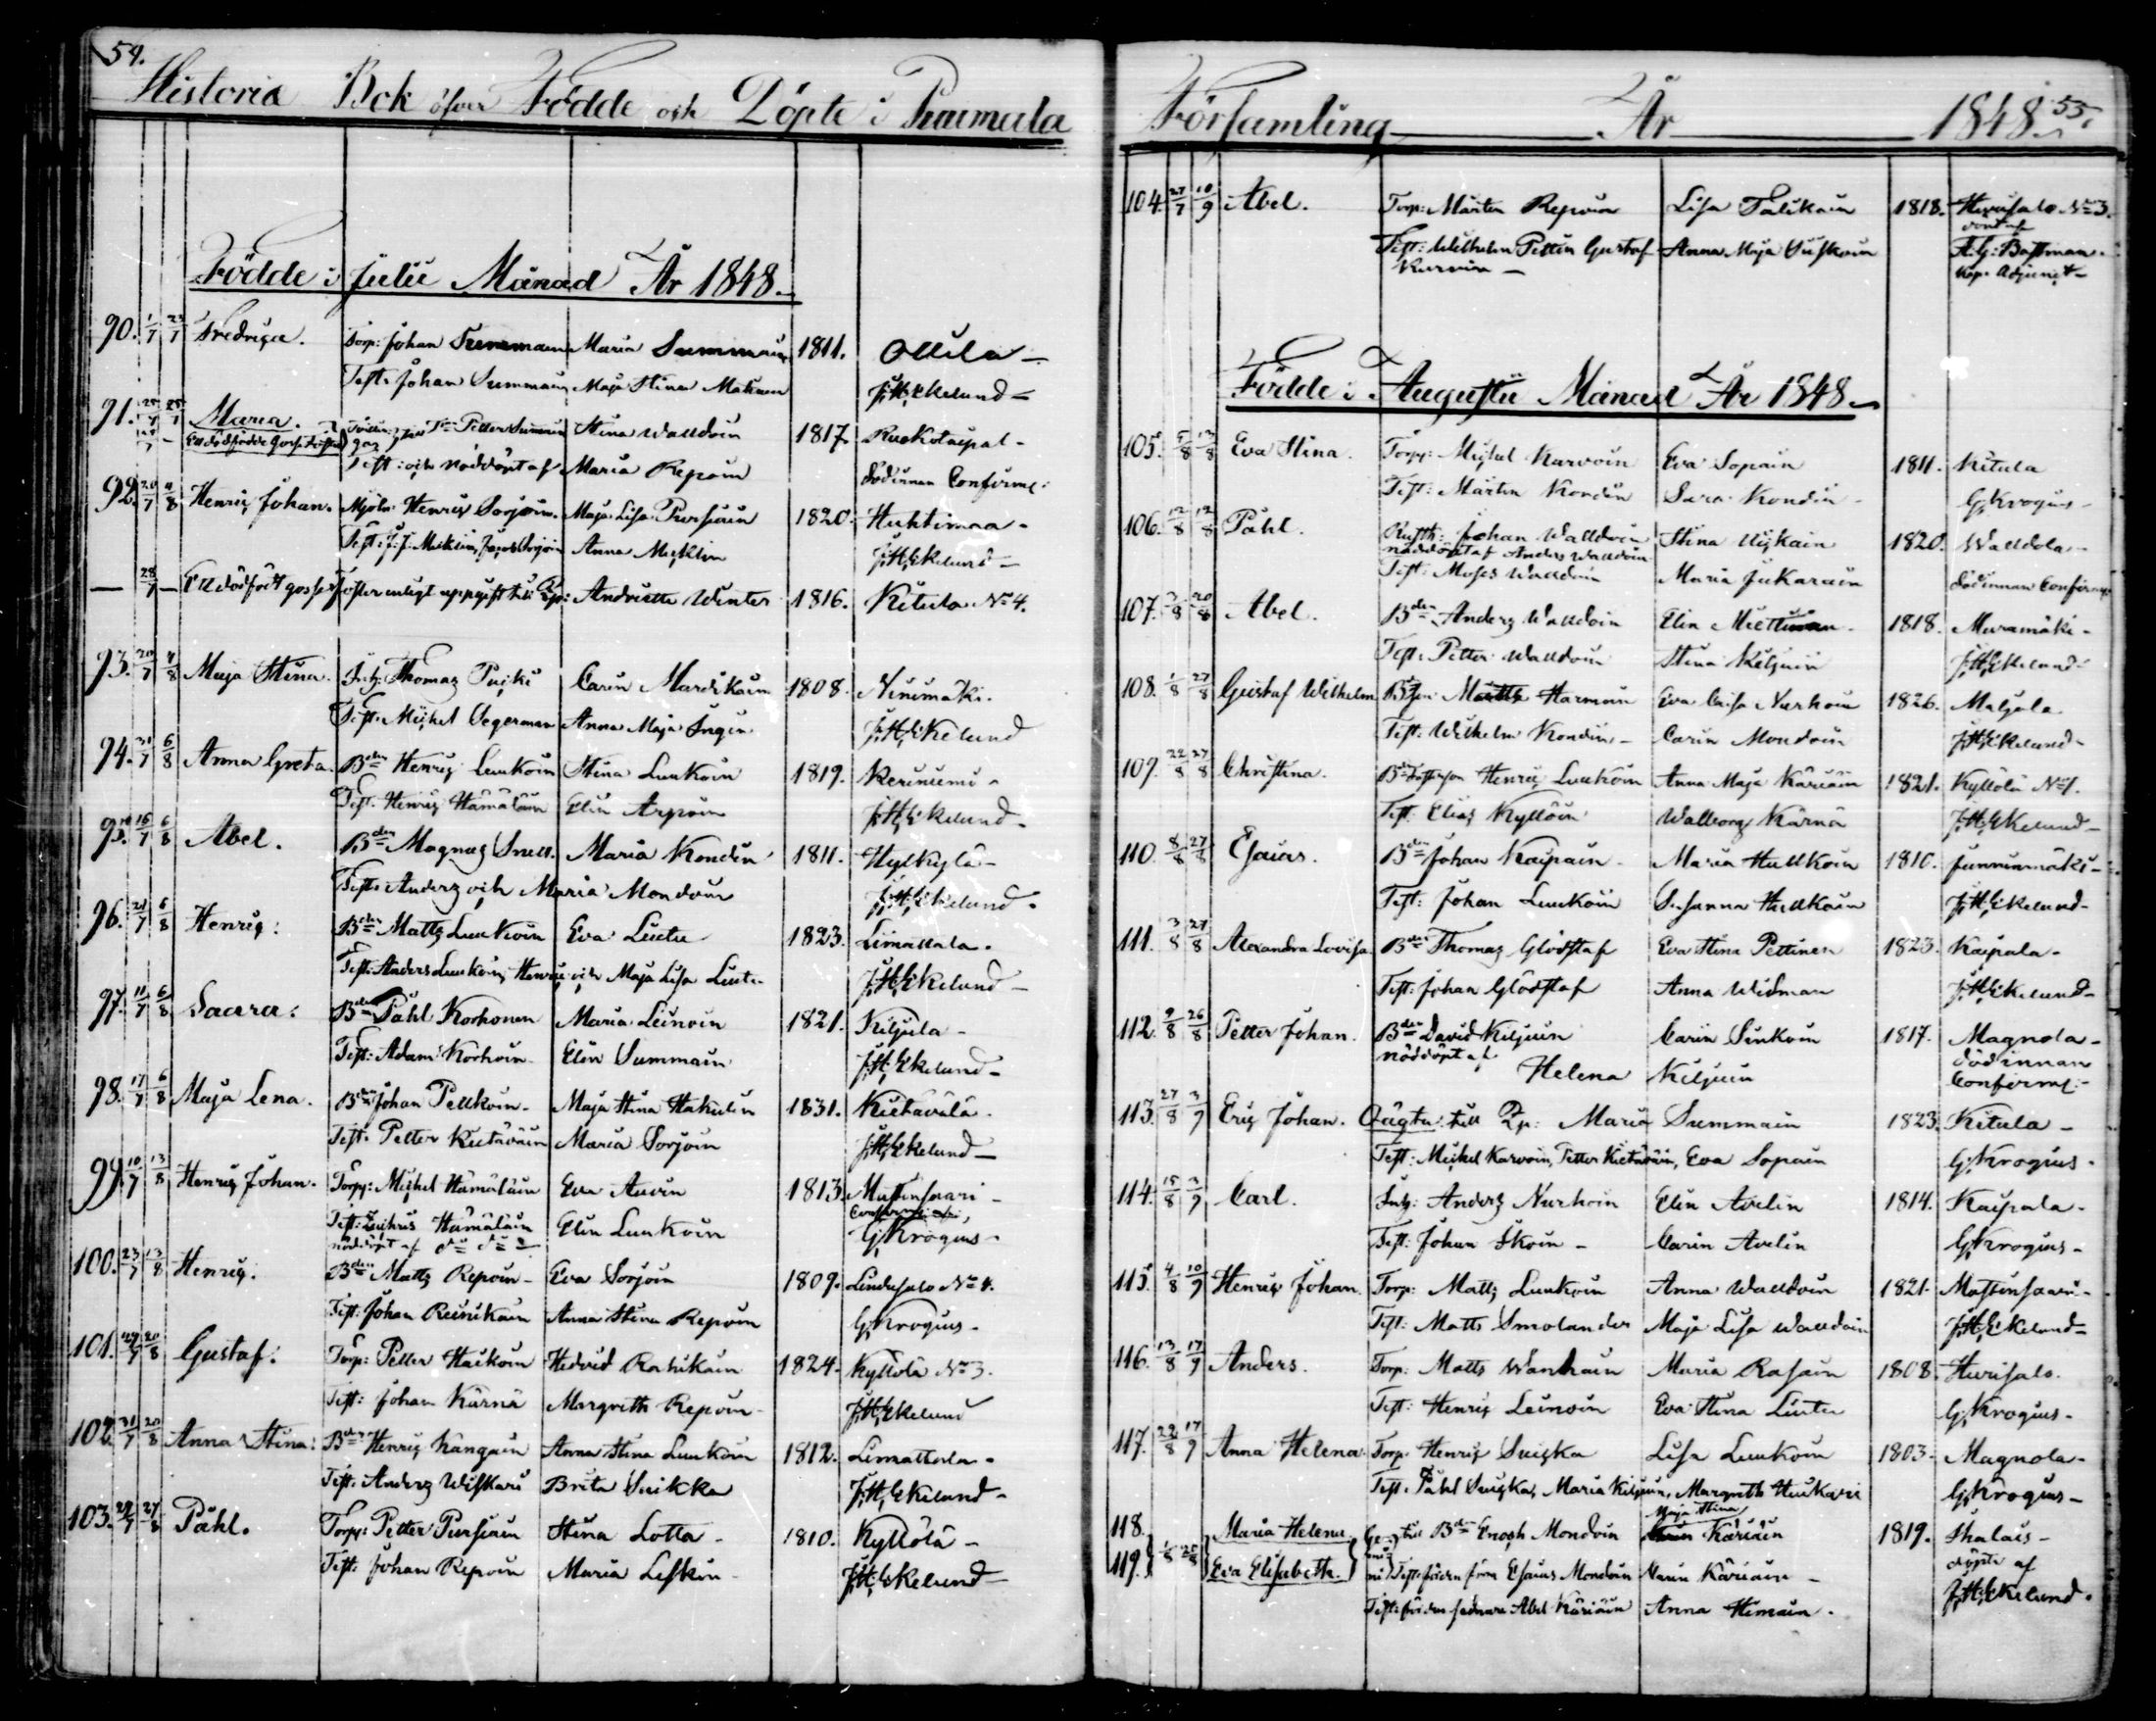 54.
Historia Bok öfver Födde och Döpte i Puumala
Födde i Julii Månad År 1848.
90. 1/7 23/7 Fredrica. Torp: Johan Summain Maria Summain 1811. Ollila
Test: Johan Summain Maja Stina J.H. Ekelund
91. 25/7 Maria. Petter Stina Walldoin 1817. Ruokotaipal
Test: och nöddöpt af Maria Repoin Död innan Confirm:
92. 20/7 4/8 Henric Johan. Mjöln: Henric Sorjoin. Maja Lisa Pursiain 1820. Huhtimaa
Test: J: J: Jacob Sorjoin Anna J.H. Ekelund
— 28/7 — Ett dödfödt gossefoster enligt uppgift till Andriette Winter 1816. Kitula No 4.
93. 20/7 4/8 Maja Stina. Inh: Thomas Carin Mardikain 1808. Niinimäki.
Test: Michel Segerman Anna Maja Ingin J.H. Ekelund
94. 31/7 6/8 Anna Greta. Bden Henric Luukoin Stina Luukoin 1819. Keriniemi
Test: Henric Hämäläin Elin Arpoin J.H. Ekelund
95. 16/7 6/8 Abel. Bden Magnus Snell. Maria Kondin 1811. Hylkylä
Test: Anders och Maria Mondoin J.H. Ekelund
96. 21/7 6/8 Henric. Bden Matts Luukoin Eva Liuta 1823. Limattala.
Test: Anders Luukoin, Henric och Maja Lisa Liuta J.H. Ekelund
97. 11/7 6/8 Saara. Bden Påhl Korhonen Maria Leinoin 1821. Kiljula
Test: Adam Korhoin Elin Summain J.H. Ekelund
98. 17/7 6/8 Maja Lena. Bden Johan Pellkoin. Maja Stina Hakulin 1831. Kietävälä.
Test: Petter Kietäväin Maria Sorjoin J.H. Ekelund
99. 10/7 13/8 Henric Johan. Torp: Michel Hämäläin Eva Auvin 1813. Mattinsaari
Test: Zachris Hämäläin Elin Luukoin
nöddöpt af G. Krogius
100. 23/7 13/8 Henric. Bden Matts Repoin Eva Sorjoin 1809. Liudesalo No 4.
Test: Johan Reinikain Anna Stina Repoin G. Krogius
101. 29/7 20/8 Gustaf. Torp: Petter Haikoin Hedvid Rahikain 1824. Kyllölä No 3.
Test: Johan Kärnä Margreth Repoin J.H. Ekelund
102. 31/7 20/8 Anna Stina. Bden Henric Kangain Anna Stina Luukoin 1812. Limattala
Test: Anders Wiskari Brita Suikka J.H. Ekelund
103. 29/7 27/8 Påhl. Torp: Petter Pursiain Stina Lotta 1810. Kyllölä
Test: Johan Repoin Maria Leskin J.H. Ekelund
Församling År 1848. 55.
104. 27/7 10/9 Abel. Torp: Mårten Repoin Lisa Talikain 1818. Hurisalo No 3.
Test: Wilhelm Pettin Gustaf Anna Maja Döpt af
Kurvin A.G. Bastman.
Kap: Adjunct
Födde i Augustii Månad År 1848
105. 5/8 13/8 Eva Stina. Torp: Michel Karvoin Eva Sopain 1811. Kitula
Test: Mårten Kondin Sara Kondin G. Krogius
106. 12/8 12/8 Påhl. Rusth: Johan Walldoin Stina Uiskain 1820. Walldola
nöddöpt af Anders Walldoin
Test: Moses Walldoin Maria Jukarain död innan Confirm
107. 3/8 20/8 Abel. Bden Anders Walldoin Elin Miettinen 1818. Muramäki
Test: Petter Walldoin Stina Kiljuin J.H. Ekelund
108. 1/8 27/8 Gustaf Wilhelm Matts Harmoin Eva Caisa Nurhoin 1826. Maljala
Test: Wilhelm Kondin Carin Mondoin J.H. Ekelund
109. 22/8 27/8 Christina. Henric Luukoin Anna Maja Käriäin 1821. Kyllölä No 1.
Test: Elias Kyllöin Wallborg Kärnä J.H. Ekelund
110. 8/8 27/8 Esaias. Bden Johan Kaipain Maria Hullkoin 1810. Junninmäki
Test: Johan Luukoin Susanna Hullkoin J.H. Ekelund
111. 3/8 27/8 Alexandra Lovisa. Bden Thomas Glödstaf Eva Stina Pettinen 1823. Kaipala
Test: Johan Glödstaf Anna Widman J.H. Ekelund
112. 9/8 26/8 Petter Johan. Bden David Kiljuin Carin Sinkoin 1817. Magnola
nöddöpt af Helena Kiljuin död innan Confirm:
113. 27/8 3/9 Eric Johan. Oägta: till Maria Summain 1823. Kitula
Test: Michel Karvoin, Petter Kietäväin, Eva Sopain G. Krogius
114. 15/8 3/9 Carl. Inh: Anders Nurhoin Elin Avelin 1814. Kaipala
Test: Johan Ikoin Carin Avelin G. Krogius
115. 4/8 10/9 Henric Johan. Torp: Matts Luukoin Anna Walldoin 1821. Mattinsaari
Test: Matts Smolander Maja Lisa Walldoin J.H. Ekelund
116. 13/8 17/9 Anders. Torp: Matts Wanhain Maria Rasain 1808. Hurisalo.
Test: Henric Leinoin Eva Stina Liuta G. Krogius
117. 22/8 17/9 Anna Helena. Torp. Henric Suicka Lisa Luukoin 1803. Magnola
Test: Påhl Suicka, Maria Kiljuin, Margreth Huikari G. Krogius
118. Maria Helena. till Bden Enoch Mondoin Maja Stina Käriäin 1819. Ihalais
119. 1/8 25/8 Eva Elisabeth. Test: för den förra Esaias Mondoin Carin Käriäin döpte af
Test: för den sednare Abel Käriäin Anna Himain. J.H. Ekelund.